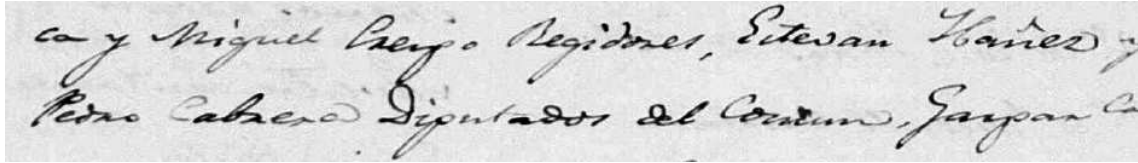 ca y Miguel Crespo Regidores, Estevan Ibañez y
Pedro Cabrera Diputados del Comun, Gaspar Ca